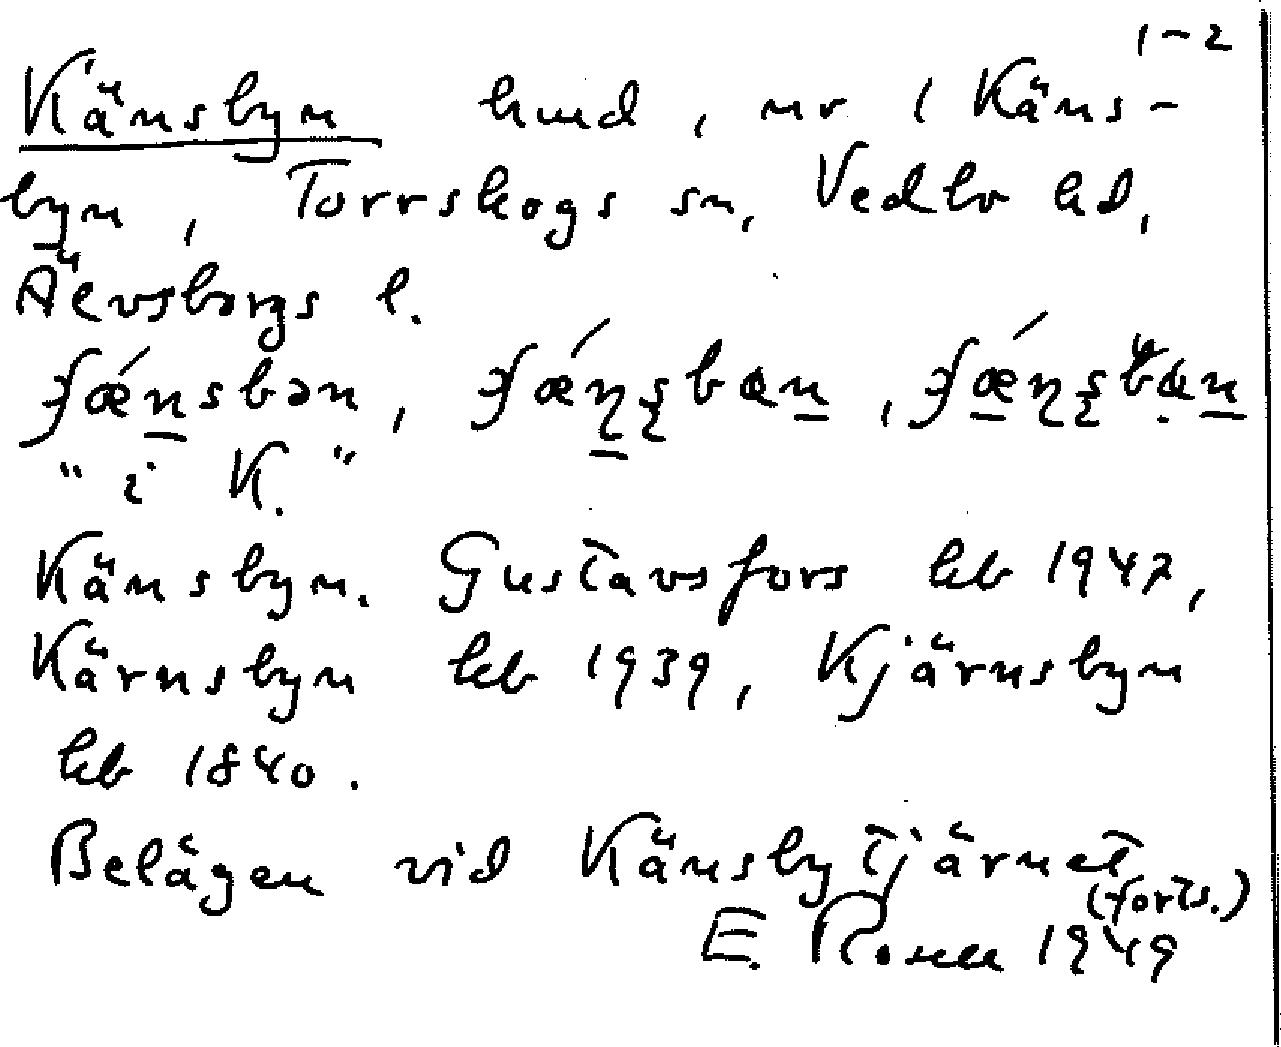 1-2
Känsbyn hmd, nr 1 Käns-
byn, Torrskogs sn, Vedbo hd,
Älvsborgs l.
"i K."
Känsbyn. Gustavsfors kb 1942,
Kärnsbyn kb 1939, Kjärnsbyn
kb 1840.
Belägen vid Känsbytjärnet
(forts.)
E. Rosell 1949